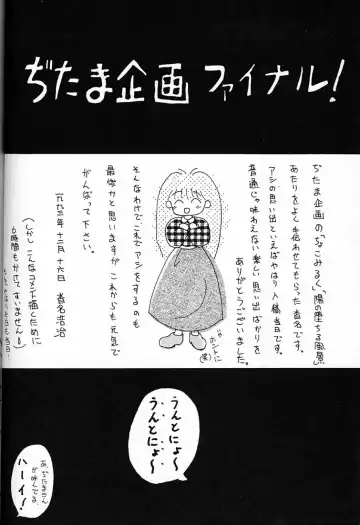 ぢたま企画 ファイナル!
ぢたま企画の「ちょこみるく」「陽の堕ちる風景」
あたりをよく手伝わせてもらった沓名です。
アシの思い出といえばやはり入稿当日です。
普通じゃ味わえない楽しい思い出ばかりを
ありがとうございました。
そんなわけでこれでアシをするのも
最後かと思いますが これからも元気で
がんばって下さい。
一九九三年 十二月 十六日 沓名浩治
6時間もかけてすいません!)
うんとにょ〜
うんとにょ〜
あ、ぢたまさんが呼んでる。
ハーイ!